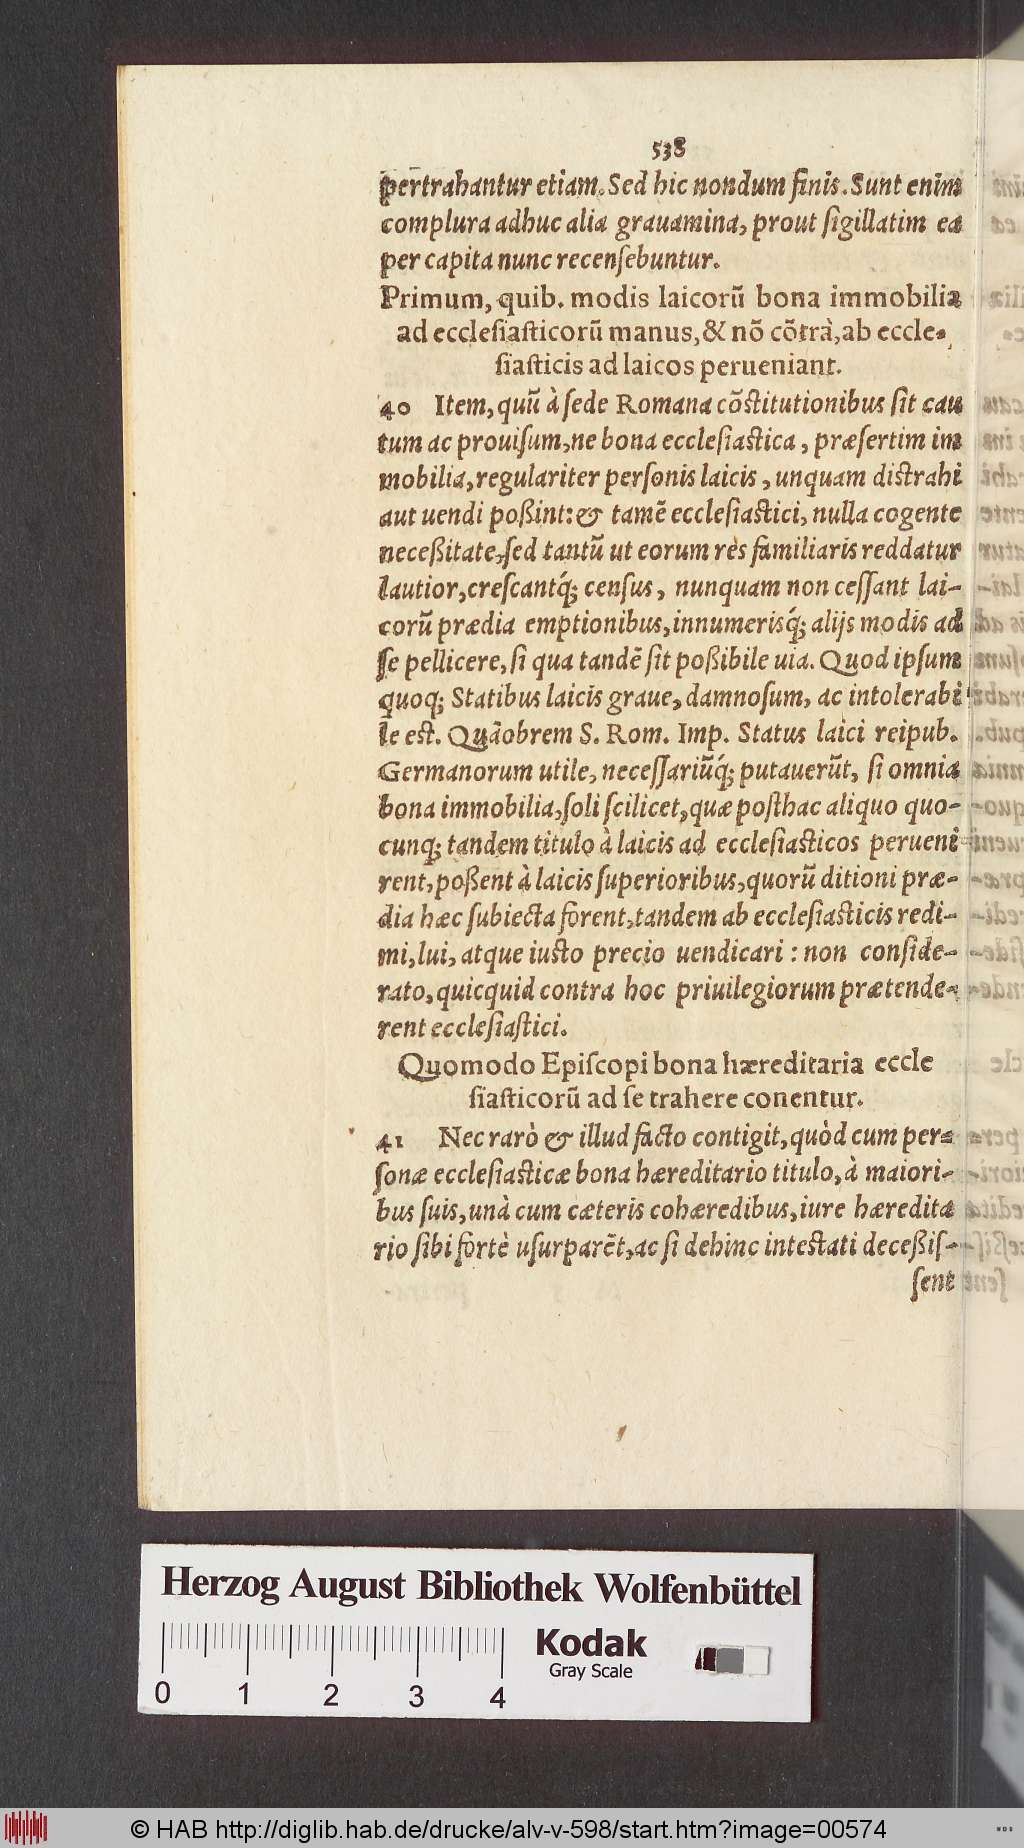 538
pertrahantur etiam. Sed hic nondum finis. Sunt enim
complura adhuc alia grauamina, prout ſigillatim ea
per capita nunc recenſebuntur.
Primum, quib. modis laicorū bona immobilia
ad eccleſiaſticorū manus, & nō cōtrà, ab eccle-
ſiaſticis ad laicos perueniant.
40 Item, quū à ſede Romana cōſtitutionibus ſit cau
tum ac prouiſum, ne bona eccleſiaſtica, præſertim im
mobilia, regulariter perſonis laicis, unquam diſtrahi
aut uendi poßint: & tamē eccleſiaſtici, nulla cogente
neceßitate, ſed tantū ut eorum res familiaris reddatur
lautior, creſcantq́; cenſus, nunquam non ceſſant lai-
corū prædia emptionibus, innumerisq́; alijs modis ad
ſe pellicere, ſi qua tandē ſit poßibile uia. Quod ipſum
quoq; Statibus laicis graue, damnoſum, ac intolerabi
le eſt. Quāobrem S. Rom. Imp. Status laici reipub.
Germanorum utile, neceſſariūq́; putauerūt, ſi omnia
bona immobilia, ſoli ſcilicet, quæ poſthac aliquo quo-
cunq; tandem titulo à laicis ad eccleſiaſticos perueni
rent, poßent à laicis ſuperioribus, quorū ditioni præ-
dia hæc ſubiecta forent, tandem ab eccleſiaſticis redi-
mi, lui, atque iuſto precio uendicari: non conſide-
rato, quicquid contra hoc priuilegiorum prætende-
rent eccleſiaſtici.
Quomodo Epiſcopi bona hæreditaria eccle
ſiaſticorū ad ſe trahere conentur.
41 Nec rarò & illud facto contigit, quòd cum per-
ſonæ eccleſiaſticæ bona hæreditario titulo, à maiori-
bus ſuis, unà cum cæteris cohæredibus, iure hæredita
rio ſibi fortè uſurparēt, ac ſi dehinc inteſtati deceßiſ-
ſent
Herzog August Bibliothek Wolfenbüttel
Kodak
Gray Scale
0 1 2 3 4
© HAB http://diglib.hab.de/drucke/alv-v-598/start.htm?image=00574